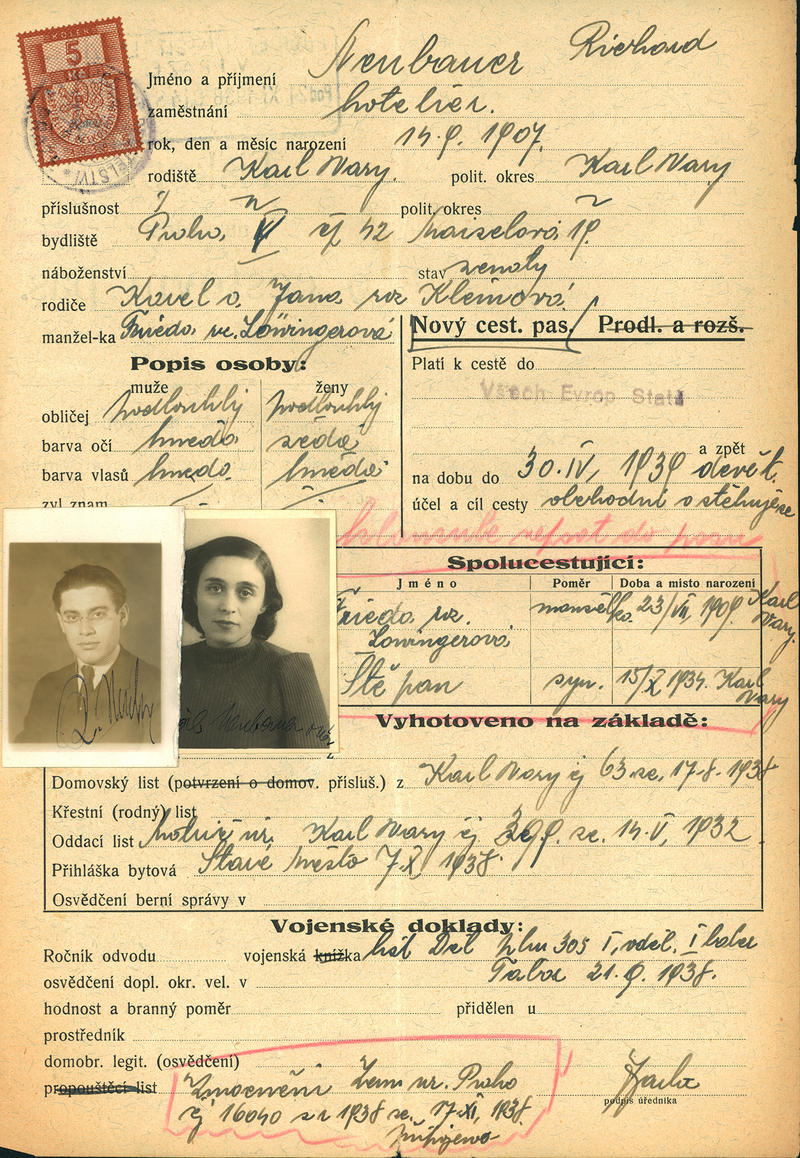 KOLEK
5
Jméno a příjmení Neubauer Richard
zaměstnání hotelier.
rok, den a měsíc narození 14.9. 1907.
rodiště Karl Vary. polit. okres Karl Vary
příslušnost polit. okres
bydliště Praha V čj 42 Maiselova 19.
náboženství stav ženatý
rodiče Karel a Jana roz Kleinová
manžel-ka Frieda roz. Löwingerová
Nový cest. pas. Prodl. a rozš.
Popis osoby:
Platí k cestě do
muže ženy
Všech Evrop Států
obličej podlouhlý podlouhlý
barva očí hnědá šedá
barva vlasů hnědá hnědá
zvl znam
a zpět
na dobu do 30.IV. 1939 devět.
účel a cíl cesty obchodní a stěhuje se
Spolucestující:
Jméno Poměr Doba a místo narození
Frieda roz. Löwingerová manželka 23/VII, 1909. Karl Vary.
Štěpan syn. 15/X 1934. Karl Vary
Vyhotoveno na základě:
Domovský list (potvrzení o domov. přísluš.) z Karl Vary čj 63 ze, 17.8.1938
Křestní (rodný) list
Oddací list Matrič úř. Karl Vary čj 399. ze. 14.V, 1932
Přihláška bytová Staré Město 7.X 1938.
Osvědčení berní správy v
Vojenské doklady:
Ročník odvodu vojenská knížka 305 I,
osvědčení dopl. okr. vel. v Tabor 21.9. 1938.
hodnost a branný poměr přidělen u
prostředník
domobr. legit. (osvědčení)
propouštěcí list Zmocnění Zem úř. Praha
čj 16040 z r 1938 ze. 17.XI, 1938.
podpis úředníka